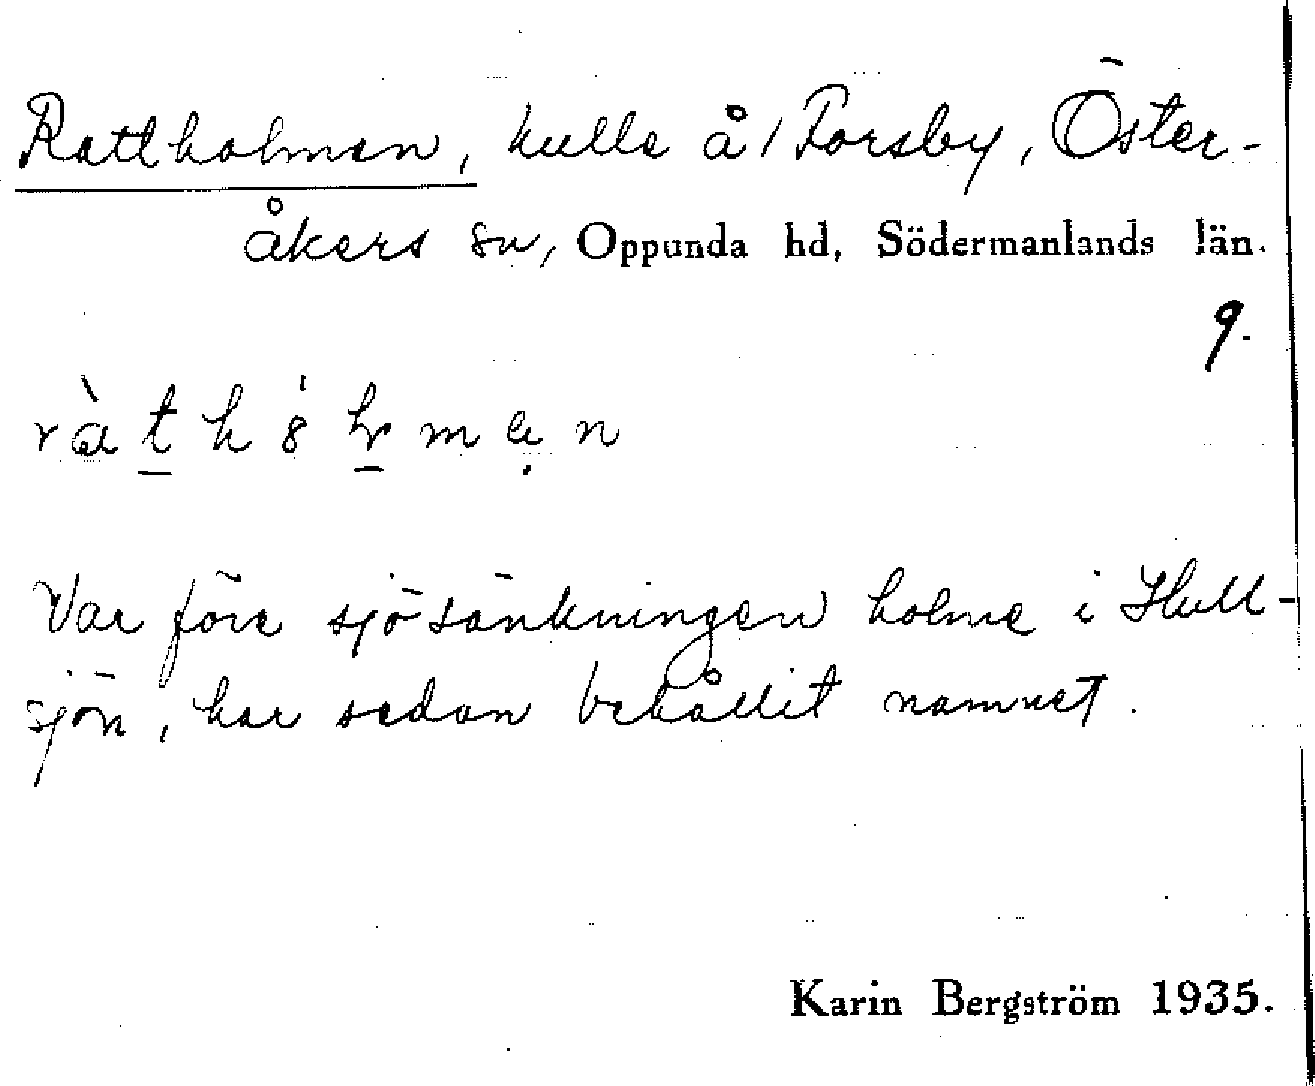 Rattholmen, kulle å/ Forsby, Öster-
åkers sn, Oppunda hd, Södermanlands län.
9.
Var före sjösänkningen holme i Hull-
sjön, har sedan behållit namnet.
Karin Bergström 1935.